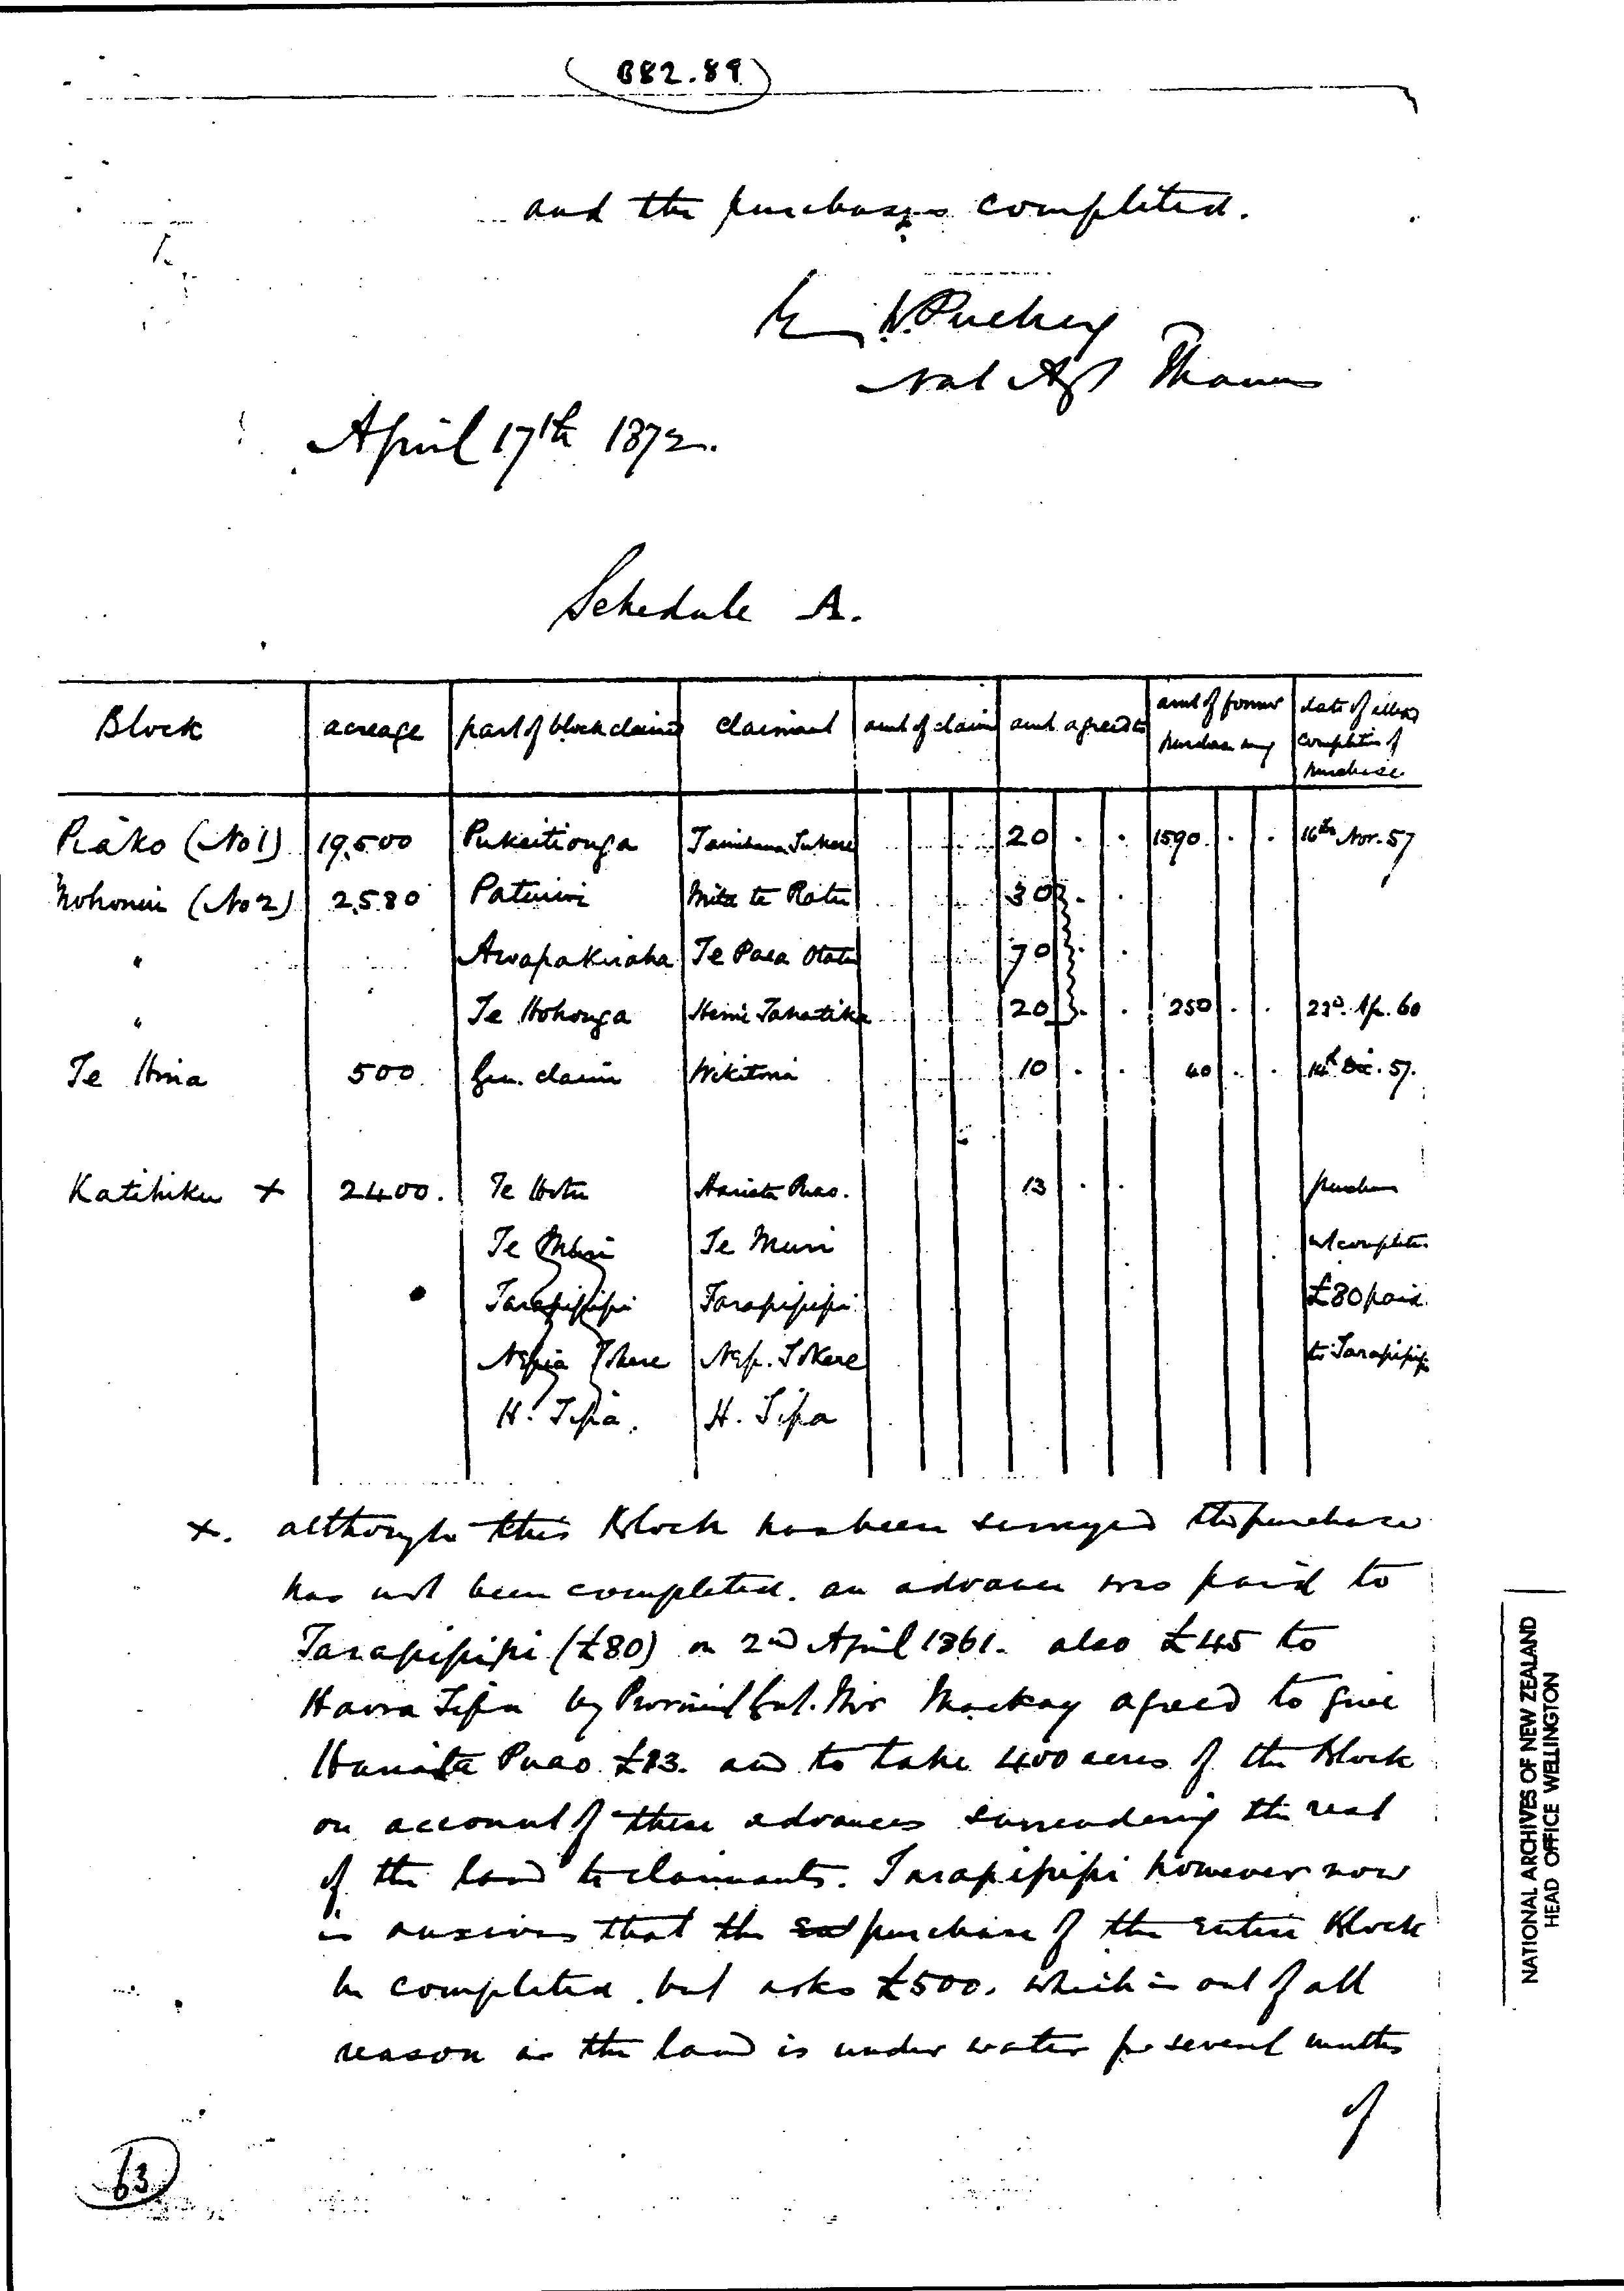 B82.89
and the purchases completed.
E. W. Puckey
Nat Agt Thames
April 17th 1872.
Schedule A.
Block | acreage | part of block claimed | Claimant | amt of claim | amt agreed to | amt of former purchase mny | date of alleged completion of purchase
Piako (No 1) | 19,500 | Pukeitionga | Tamihana Tukere | | 20 . . | 1590 . . | 16th Nov. 57
(No 2) | 2,580 | | Mita te Ratu | | 30 . .
" | Awapakuraha | Te Paea | | 70 . .
" | Te Hohonga | Hemi | | 20 . . | 250 . . | 23d. Ap. 60
Te Hina | 500 | Gen. claim | Wikitoria | | 10 . . | 40 . . | 14th Dec. 57.
Katihiku + | 2400. | Te Hotu | Hariata Puao. | | 13 . . | | purchase
Te Muri | Te Muri | not complete
Tarapipipi | Tarapipipi | £80 paid
Nepia Tokere | Nep. Tokere | to Tarapipipi
H. Tipa. | H. Tipa
+. although this Block has been surveyed the purchase
has not been completed. an advance was paid to
Tarapipipi (£80) on 2nd April 1861. also £45 to
Haora Tipa by Provincial Gvt. Mr Mackay agreed to give
Puao £13. and to take 400 acres of the Block
on account of these advances surrendering the rest
of the land to claimants. Tarapipipi however now
is anxious that the purchase of the entire Block
be completed. but asks £500. which is out of all
reason as the land is under water for several months
of
63
NATIONAL ARCHIVES OF NEW ZEALAND
HEAD OFFICE WELLINGTON